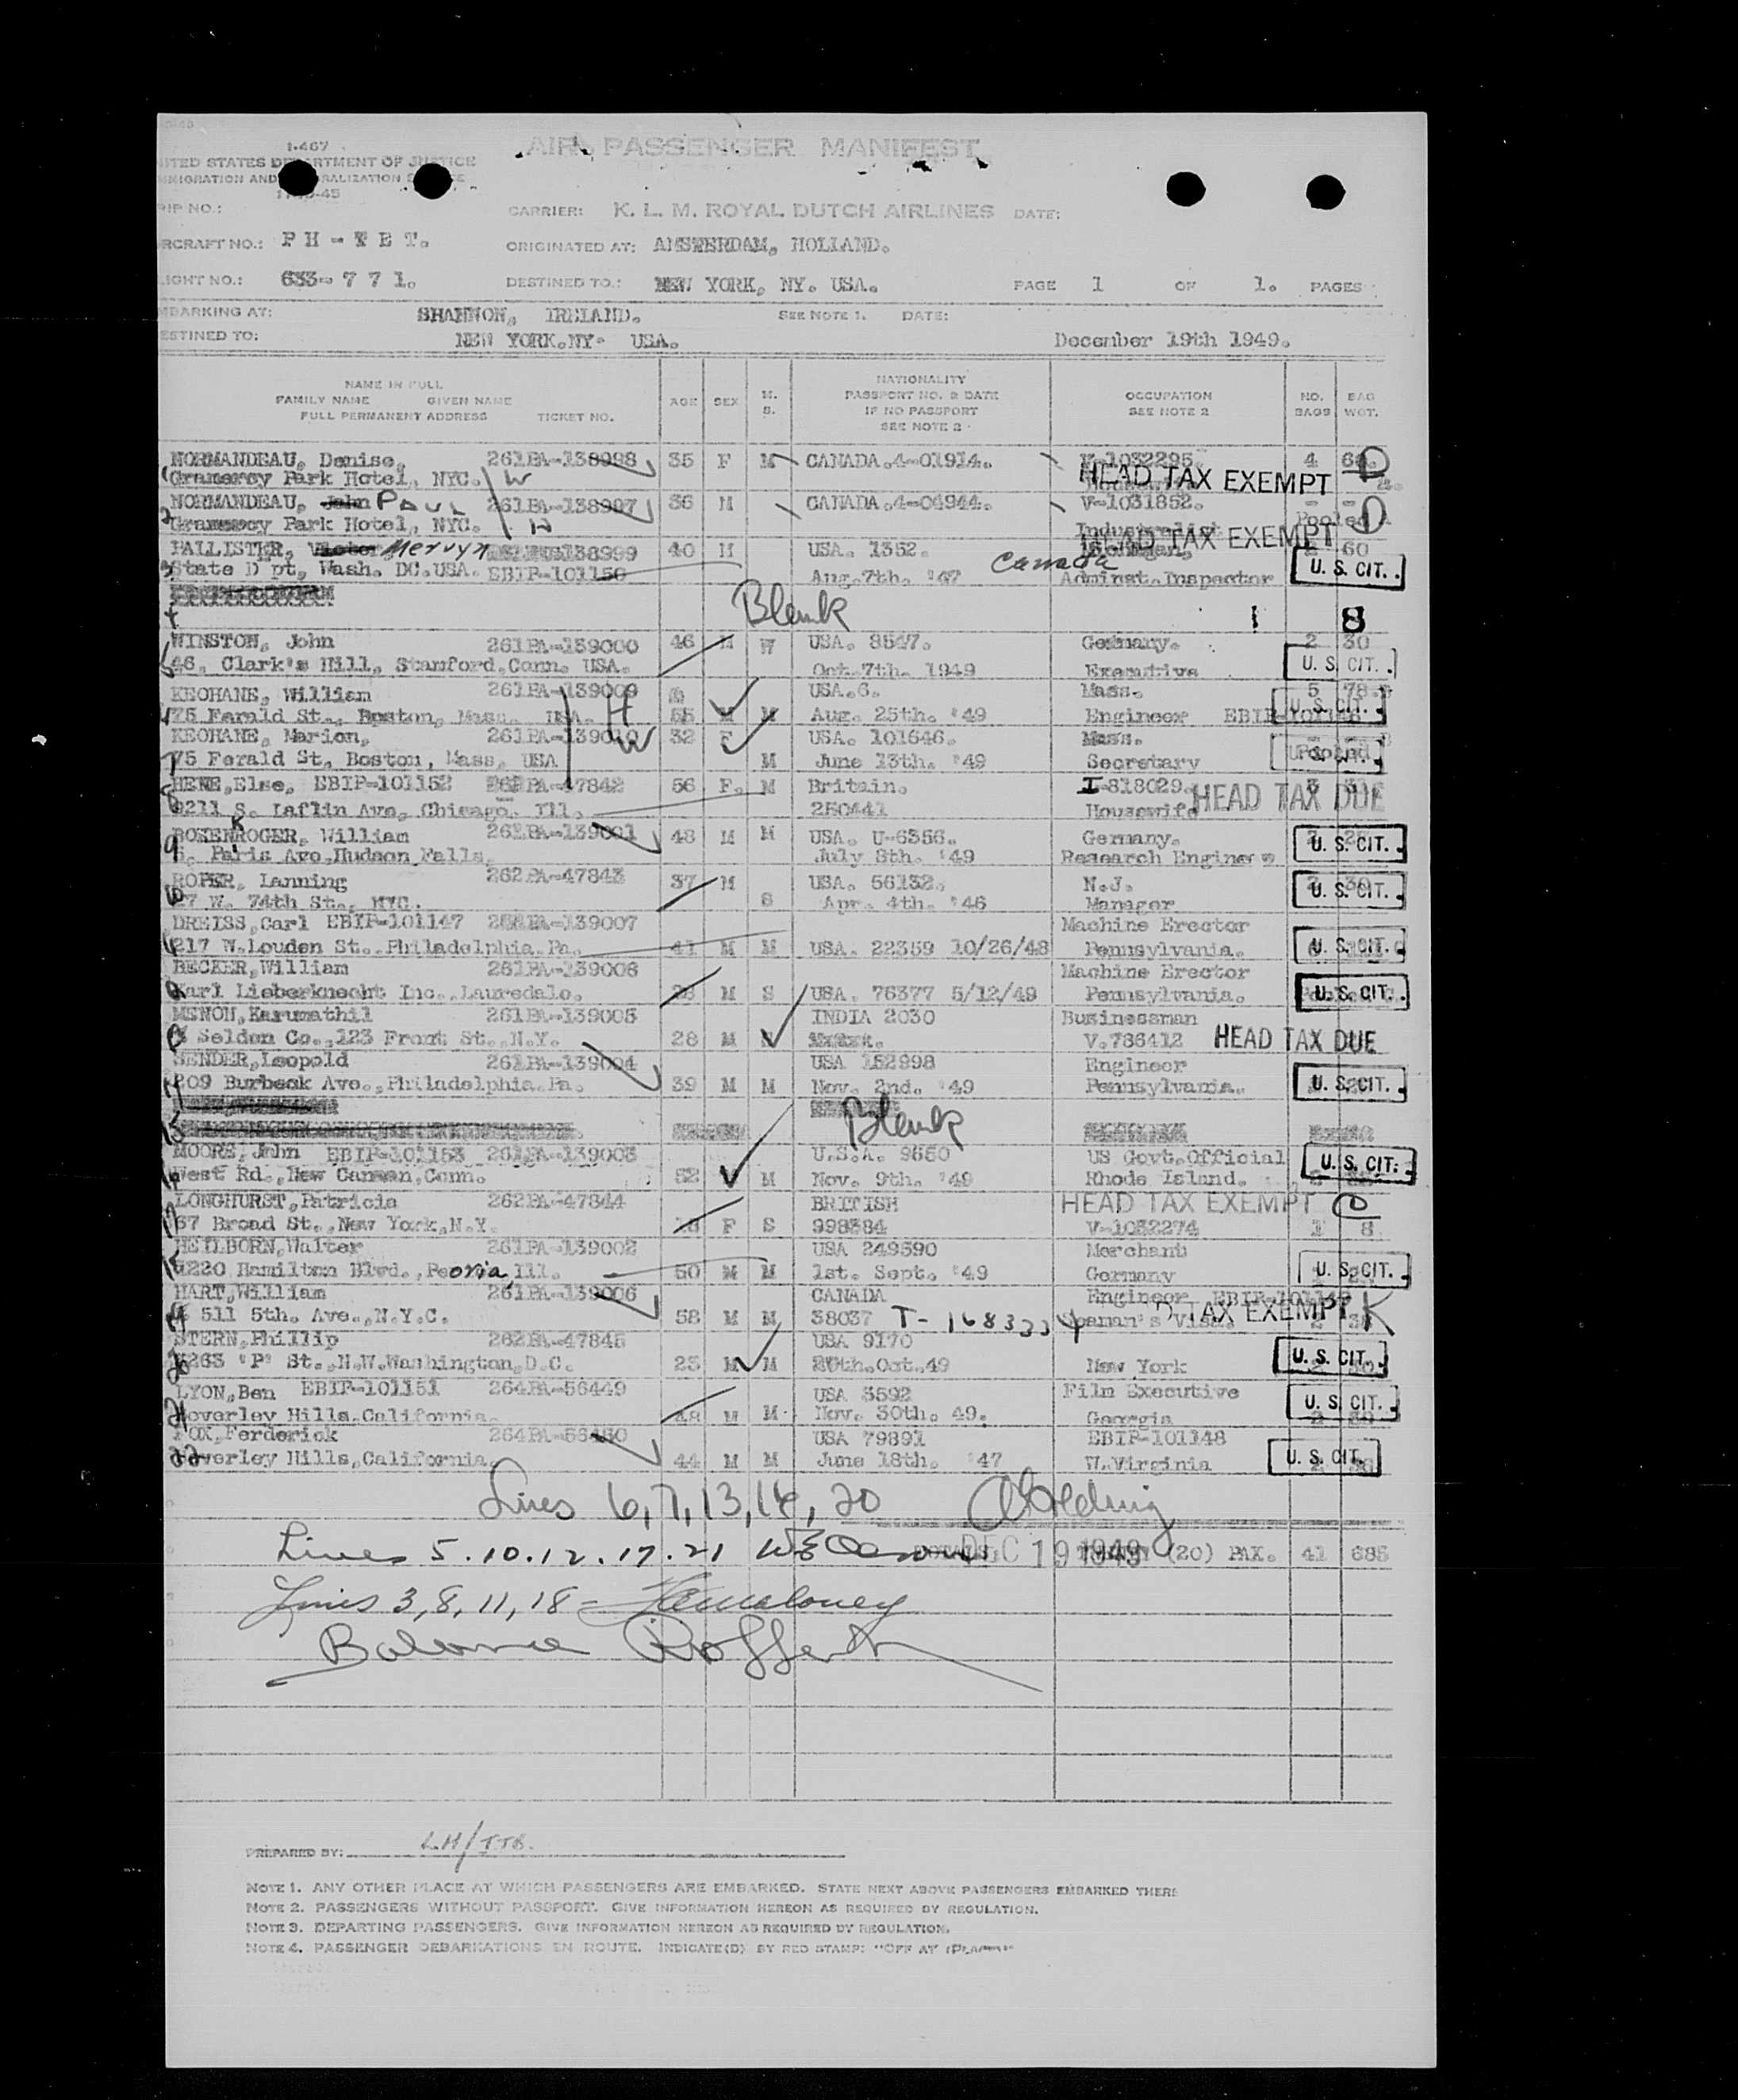 I-467
AIR PASSENGER MANIFEST
UNITED STATES DEPARTMENT OF JUSTICE
IMMIGRATION AND NATURALIZATION SERVICE
CARRIER: K. L. M. ROYAL DUTCH AIRLINES DATE:
RIP NO.:
RCRAFT NO.: ORIGINATED AT: AMSTERDAM, HOLLAND.
IGHT NO.: 633-7 7 1. DESTINED TO.: NEW YORK, NY. USA. PAGE 1 OF 1. PAGES
MBARKING AT: SHANNON, IRELAND. SEE NOTE 1. DATE:
ESTINED TO: NEW YORK.NY- USA. December 19th 1949.
NAME IN FULL
FAMILY NAME GIVEN NAME
FULL PERMANENT ADDRESS TICKET NO.
AGE SEX M. S.
NATIONALITY
PASSPORT NO. & DATE
IF NO PASSPORT
SEE NOTE 2
OCCUPATION
SEE NOTE 2
NO. BAGS BAG WGT.
NORMANDEAU, Denise, 261PA-138998 35 F M CANADA.4-01914. V-1032295 4
Gramercy Park Hotel, NYC. W HEAD TAX EXEMPT
NORMANDEAU, John PAUL 261PA-138997 36 M CANADA.4-04944. V-1031852.
Gramercy Park Hotel, NYC. H Industrialist HEAD TAX EXEMPT
PALLISTER, Mervyn 138999 40 M USA. 1352. 60
State D pt, Wash. DC.USA. EBIP-101150 Aug.7th. '47 Canada Adminst.Inspector U. S. CIT.
4 Blank 1 8
WINSTON, John 261PA-139000 46 M W USA. 8547. Germany. 2 30
46, Clark's Hill, Stamford.Conn. USA. Oct.7th. 1949 Executive U. S. CIT.
KEOHANE, William 261PA-139009 USA.6. Mass. 5 78
75 Ferald St., Boston, Mass. USA. H 55 M M Aug. 25th. '49 Engineer U. S. CIT.
KEOHANE, Marion, 261PA-139010 W 32 F USA. 101646. Mass.
75 Ferald St, Boston, Mass, USA M June 13th. '49 Secretary
HENE,Else, EBIP-101152 262PA-47842 56 F. M Britain. I-818029.
8211 S. Laflin Ave, Chicago, Ill. 250441 Housewife HEAD TAX DUE
William 261PA-139001 48 M M USA. U-6356. Germany.
Paris Ave,Hudson Falls. July 8th. '49 Research Engineer U. S. CIT.
ROPER, Lanning 262PA-47843 37 M USA. 56132. N.J.
27 W. 74th St., NYC. S Apr. 4th. '46 Manager U. S. CIT.
DREISS,Carl EBIP-101147 261PA-139007 Machine Erector
217 W.Louden St..Philadelphia.Pa. 41 M M USA. 22359 10/26/48 Pennsylvania. U. S. CIT.
BECKER,William 261PA-139008 Machine Erector
Karl Lieberknecht Inc..Lauredale. 26 M S USA. 76377 5/12/49 Pennsylvania. U. S. CIT.
MENON,Karunathil 261PA-139005 INDIA 2030 Businessman
Seldon Co.,123 Front St.,N.Y. 28 M V.786412 HEAD TAX DUE
SENDER,Leopold 261PA-139004 USA 152998 Engineer
209 Burbeck Ave.,Philadelphia.Pa. 39 M M Nov. 2nd. '49 Pennsylvania. U. S. CIT.
Blank
MOORE,John EBIP-101153 261PA-139003 U.S.A. 9650 US Govt.Official
West Rd.,New Canaan,Conn. 52 M Nov. 9th. '49 Rhode Island. U. S. CIT.
LONGHURST,Patricia 262PA-47844 BRITISH HEAD TAX EXEMPT
67 Broad St.,New York,N.Y. 18 F S 998384 V-1032274 1 8
HEILBORN,Walter 261PA-139002 USA 249590 Merchant
4220 Hamilton Blvd.,Peoria,Ill. 50 M M 1st. Sept. '49 Germany U. S. CIT.
HART,William 261PA-139006 CANADA Engineer
511 5th. Ave.,N.Y.C. 58 M M 38037 T-1683334 Seaman's Visa. TAX EXEMPT
STERN,Phillip 262PA-47845 USA 9170
3263 'P' St.,N.W.Washington,D.C. 23 M M 20th.Oct.49 New York U. S. CIT.
LYON,Ben EBIP-101151 264PA-56449 USA 3592 Film Executive
Beverley Hills.California. 48 M M Nov. 30th. 49. Georgia U. S. CIT.
FOX,Ferderick 264PA-56450 USA 79891 EBIP-101148
Beverley Hills,California. 44 M M June 18th. '47 W.Virginia U. S. CIT.
Lines 6, 7, 13, 16, 20
Lines 5.10.12.17.21 DEC 19 1949 (20) PAX. 41 685
Lines 3, 8, 11, 18 -
Balance
PREPARED BY: LH/
NOTE 1. ANY OTHER PLACE AT WHICH PASSENGERS ARE EMBARKED. STATE NEXT ABOVE PASSENGERS EMBARKED THERE
NOTE 2. PASSENGERS WITHOUT PASSPORT. GIVE INFORMATION HEREON AS REQUIRED BY REGULATION.
NOTE 3. DEPARTING PASSENGERS. GIVE INFORMATION HEREON AS REQUIRED BY REGULATION.
NOTE 4. PASSENGER DEBARKATIONS EN ROUTE. INDICATE(D) BY RED STAMP: "OFF AT (PLACE)"